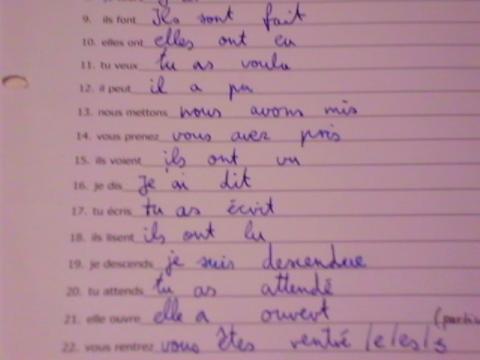 9. ils font Ils sont fait
10. elles ont elles ont eu
11. tu veux tu as voulu
12. il peut il a pu
13. nous mettons nous avons mis
14. vous prenez vous avez pris
15. ils voient ils ont vu
16. je dis Je ai dit
17. tu écris tu as écrit
18. ils lisent ils ont lu
19. je descends je suis descendue
20. tu attends tu as attendé
21. elle ouvre elle a ouvert
22. vous rentrez vous êtes rentré/e/es/s